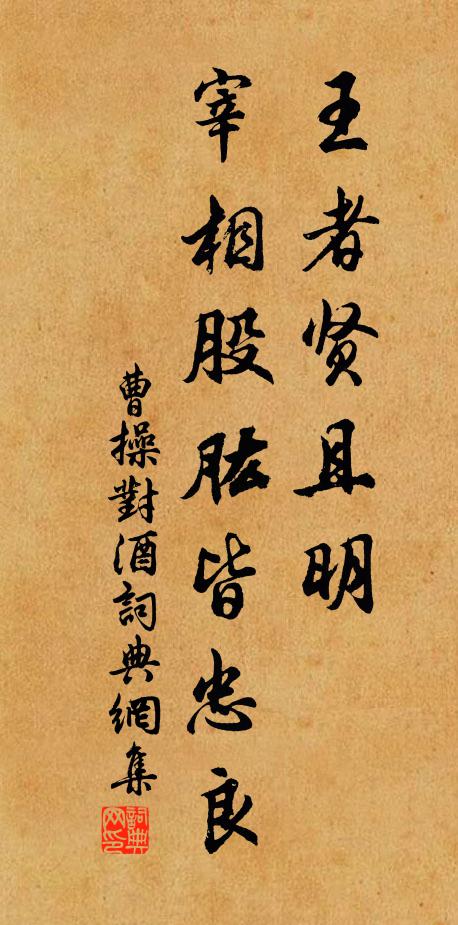 王者贤且明
宰相股肱皆忠良
曹操對酒詞典網集
詞典网印